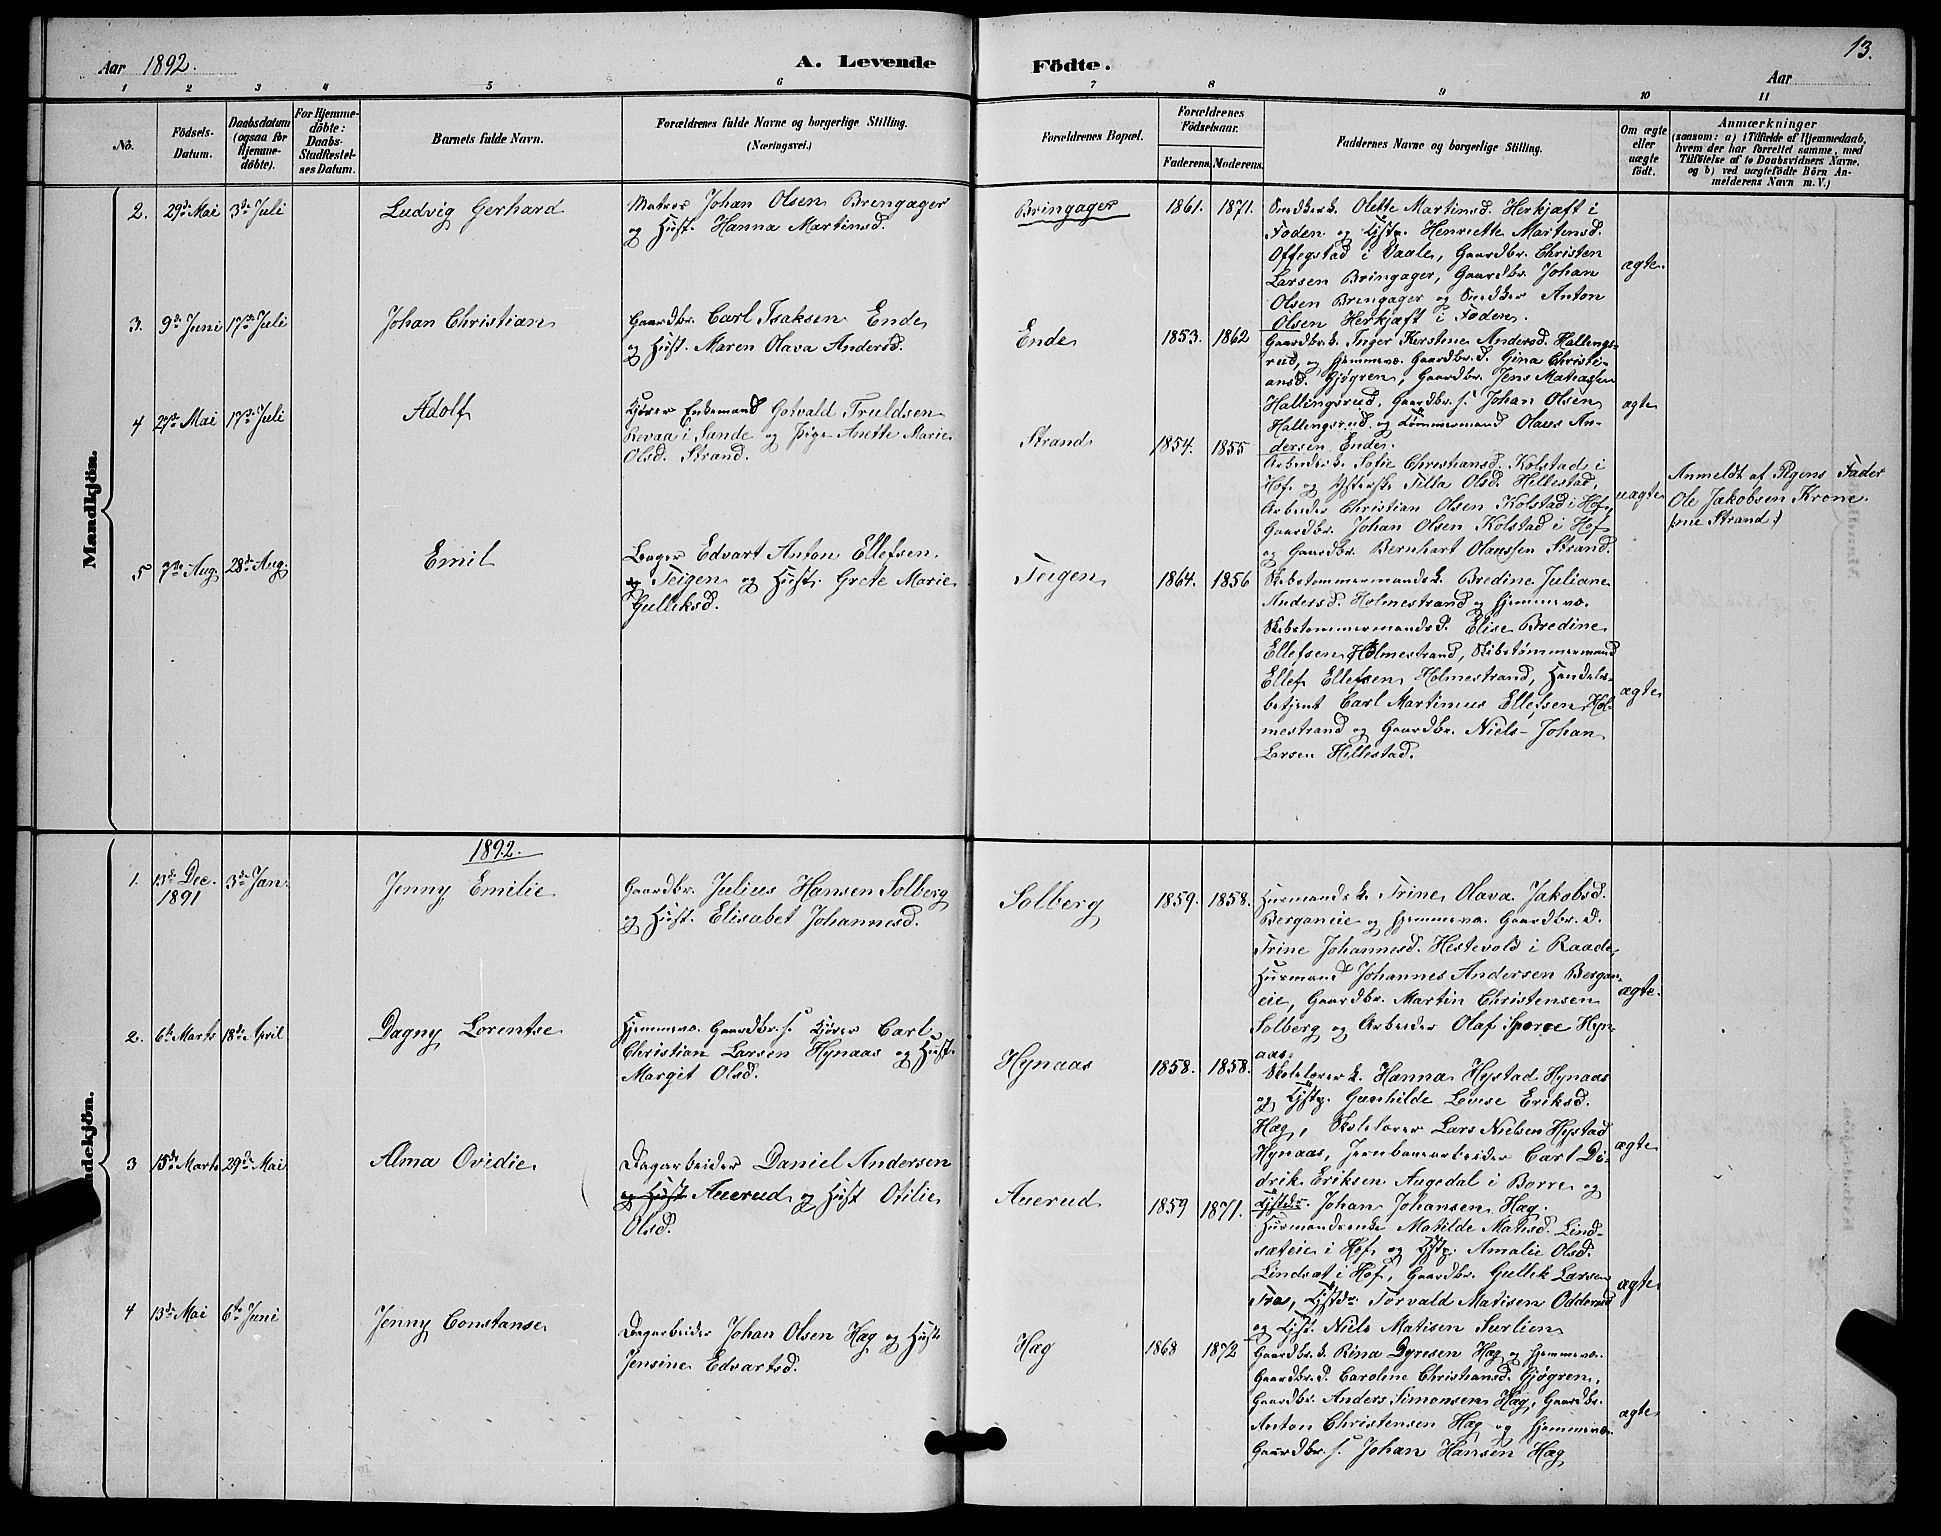 Aar 1892.
A. Levende Födte.
Aar
13.
1 2 3 4 5 6 7 8 9 10 11
No.
Födsels-
Datum.
Daabsdatum
(ogsaa for
Hjemme-
döbte).
For Hjemme-
döbte:
Daabs-
Stadfæstel-
ses Datum.
Barnets fulde Navn.
Forældrenes fulde Navne og borgerlige Stilling.
(Næringsvei.)
Forældrenes Bopæl.
Forældrenes
Födselsaar.
Faderens. Moderens.
Faddernes Navne og borgerlige Stilling.
Om ægte
eller
uægte
födt.
Anmærkninger
(saasom: a) i Tilfælde af Hjemmedaab,
hvem der har forrettet samme, med
Tilföielse af to Daabsvidners Navne,
og b) ved uægtefödte Börn An-
melderens Navn m. V.)
Mandkjön.
2. 29de Mai 3die Juli
Ludvig Gerhard
Matros Johan Olsen Bringager
og Hust. Hanna Martinsd.
Bringager
1861. 1871.
Snedkerk. Olette Martinsd. Herkjæft i
Foden og Tjstp. Henriette Martinsd.
Offegstad i Vaale, Gaardbr. Christen
Larsen Bringager, Gaardbr. Johan
Olsen Bringager og Snedker Anton
Olsen Herkjæft i Foden.
ægte
3. 9de Juni 17de Juli
Johan Christian
Gaardbr. Carl Isaksen Ende
og Hust. Maren Olava Andersd.
Ende
1853. 1862
Gaardbr.k. Inger Kirstine Andersd. Hallings-
rud, og Hjemmevæ. Gaardbr.d. Gina Christi-
ansd. Gjøgren, Gaardbr. Jens Matiassen
Hallingsrud, Gaardbr.s. Johan Olsen
Hallingsrud og Tømmermand Olaus An-
dersen Ende.
ægte
4 27de Mai 17de Juli
Adolf
Kjører Enkemand Gotvald Truldsen
Revaa i Sande og Pige Anette Marie
Olsd. Strand.
Strand
1854. 1855
Arbeiderk. Sofie Christiansd. Kolstad i
Hof og Tilla Olsd. Hillestad,
Arbeider Christian Olsen Kolstad i Hof,
Gaardbr. Johan Olsen Kolstad i Hof
og Gaardbr. Bernhart Olaussen Strand.
uægte
Anmeldt af Pigens Fader
Ole Jakobsen Krone
Strand.)
5 7de Aug. 28de Aug.
Emil
Bager Edvart Anton Ellefsen
Teigen og Hust. Grete Marie
Gulliksd.
Teigen
1864. 1856
Skibstømmermandsk. Bredine Juliane
Andersd. Holmestrand og Hjemmevæ.
Skibstømmermandsd. Elise Bredine
Ellefsen Holmestrand, Skibstømmermand
Ellef Ellefsen Holmestrand, Handels-
betjent Carl Martinius Ellefsen Hol-
mestrand og Gaardbr. Niels Johan
Larsen Hillestad.
ægte
1892.
1. 13de Dec.
1891
3die Jan.
Jenny Emilie
Gaardbr. Julius Hansen Solberg
og Hust. Elisabet Johannesd.
Solberg
1859. 1858.
Husmandsk. Trine Olava Jakobsd.
Berganeie og Hjemmevæ. Gaardbr.d.
Trine Johannesd. Hestevold i Raade,
Husmand Johannes Andersen Bergan-
eie, Gaardbr. Martin Christensen
Solberg og Arbeider Olaf Sporre Hyn-
aas.
ægte.
2. 6te Marts 18de April
Dagny Lorentse
Hjemmevæ. Gaardbr.s. Kjører Carl
Christian Larsen Hynaas og Hust.
Margit Olsd.
Hynaas
1858. 1858.
Skolelærerk. Hanna Hystad Hynaas
og Tjstp. Gunhilde Lovise Eriksd.
Hæg, Skolelærer Lars Nielsen Hystad
Hynaas, Jernbanearbeider Carl Di-
drik Eriksen Augedal i Borre og
Tjstedr. Johan Johansen Hæg.
ægte
3 15de Marts 29de Mai
Alma Ovidie
Dagarbeider Daniel Andersen
og Hust Auerud og Hust Otilie
Olsd.
Auerud
1859 1871.
Husmandsenke Matilde Matisd. Lind-
sæteie i Hof og Tjstp. Amalie Olsd.
Lindsæt i Hof, Gaardbr. Gullik Larsen
Fras, Tjstdr. Torvald Matisen Odderud
og Tjst. Niels Matisen Sælien
ægte
4 13de Mai 6te Juni
Jenny Constanse
Dagarbeider Johan Olsen Hæg og Hust
Jensine Edvartsd.
Hæg
1868 1872
Gaardbr.k. Rina Dyresen Hæg og Hjemmevæ.
Gaardbr.d. Caroline Christiansd. Gjøgren,
Gaardbr. Anders Simonsen Hæg, Gaardbr.
Anton Christensen Hæg og Hjemmevæ.
Gaardbr.s. Johan Hansen Hæg
ægte